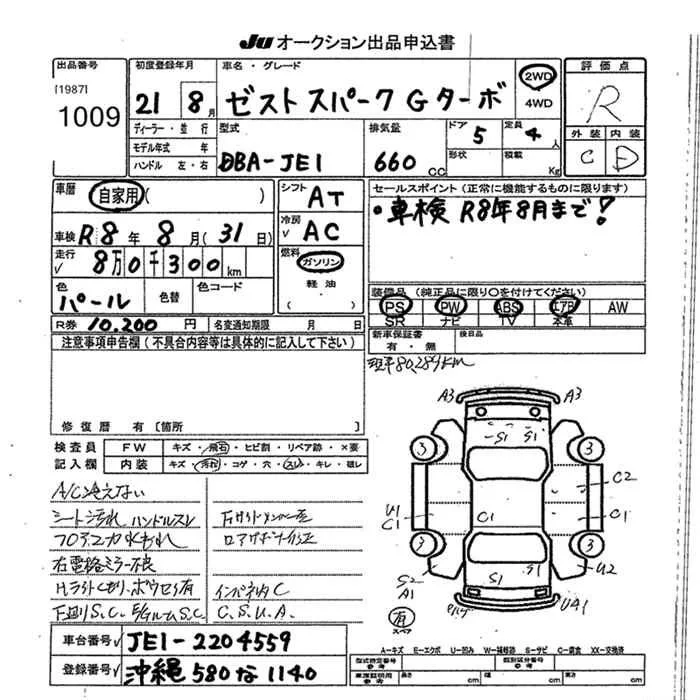 JU オークション出品申込書
出品番号
[1987]
1009
初度登録年月
21 8月
車名・グレード
ゼスト スパーク G ターボ
2WD
4WD
評価点
R
外装 内装
C D
ディーラー・並行
モデル年式 年
ハンドル 左・右
型式
DBA-JE1
排気量
660 CC
ドア 5
形状
定員 4人
積載 Kg
車歴 自家用( )
車検 R8年8月(31日)
走行 8万0千300km
色 パール 色替 色コード
シフト AT
冷房 AC
燃料 ガソリン
軽油
( )
セールスポイント(正常に機能するものに限ります)
・車検 R8年8月まで!
装備品(純正品に限り○を付けてください)
PS PW ABS エアB AW
SR ナビ TV 本革
新車保証書 後日品
有・無
R券 10,200円 名変通知期限 月 日
注意事項申告欄(不具合内容等は具体的に記入して下さい)
修復歴 有〔箇所 〕
80,289km
検査員 FW キズ・飛石・ヒビ割・リペア跡・×要
記入欄 内装 キズ・汚れ・コゲ・穴・スレ・キレ・破レ
A/C冷えない
シート汚れ ハンドルスレ
フロアコア水もれ
右電格ミラー不良
下廻りS.C.
インパネ内C
C.S.U.A.
A3 A3
S1 S1
3 3
C2
U1
C1 C1 C1
3 3
S2
A1
S1 S1
U2
UA1
有
スペア
車台番号 JE1-2204559
登録番号 沖縄 580 な 1140
A−キズ E−エクボ U−凹み W−補修跡 S−サビ C−腐食 XX−交換済
型式指定番号 参考 類別区分番号 参考
車庫証明用 参考 長さ cm 幅 cm 高さ cm